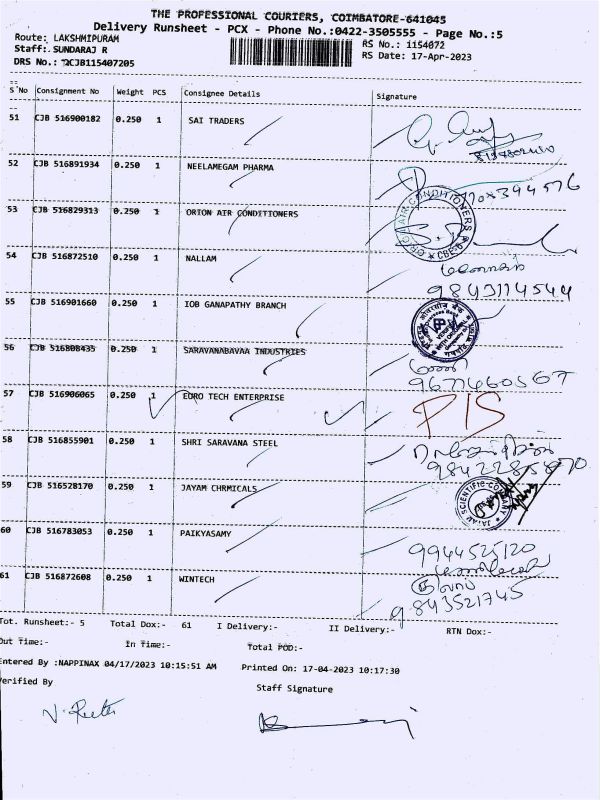 THE PROFESSIONAL COURIERS, COIMBATORE-641045
Delivery Runsheet - PCX - Phone No.:0422-3505555 - Page No.:5
Route: LAKSHMIPURAM
RS No.: 1154072
Staff: SUNDARAJ R
RS Date: 17-Apr-2023
DRS No.: CJB115407205
S'No Consignment No Weight PCS Consignee Details Signature
51 CJB 516900182 0.250 1 SAI TRADERS
52 CJB 516891934 0.250 1 NEELAMEGAM PHARMA
53 CJB 516829313 0.250 1 ORION AIR CONDITIONERS
ORION AIR CONDITIONERS
* CBE-6 *
54 CJB 516872510 0.250 1 NALLAM
9843114544
55 CJB 516901660 0.250 1 IOB GANAPATHY BRANCH
56 CJB 516808435 0.250 1 SARAVANABAVAA INDUSTRIES
9677460567
57 CJB 516906065 0.250 1 EURO TECH ENTERPRISE P/S
58 CJB 516855901 0.250 1 SHRI SARAVANA STEEL
59 CJB 516528170 0.250 1 JAYAM CHRMICALS
60 CJB 516783053 0.250 1 PAIKYASAMY
9944525120
61 CJB 516872608 0.250 1 WINTECH
9843521745
Tot. Runsheet:- 5 Total Dox:- 61 I Delivery:- II Delivery:- RTN Dox:-
Out Time:- In Time:- Total POD:-
Entered By :NAPPINAX 04/17/2023 10:15:51 AM Printed On: 17-04-2023 10:17:30
Verified By Staff Signature